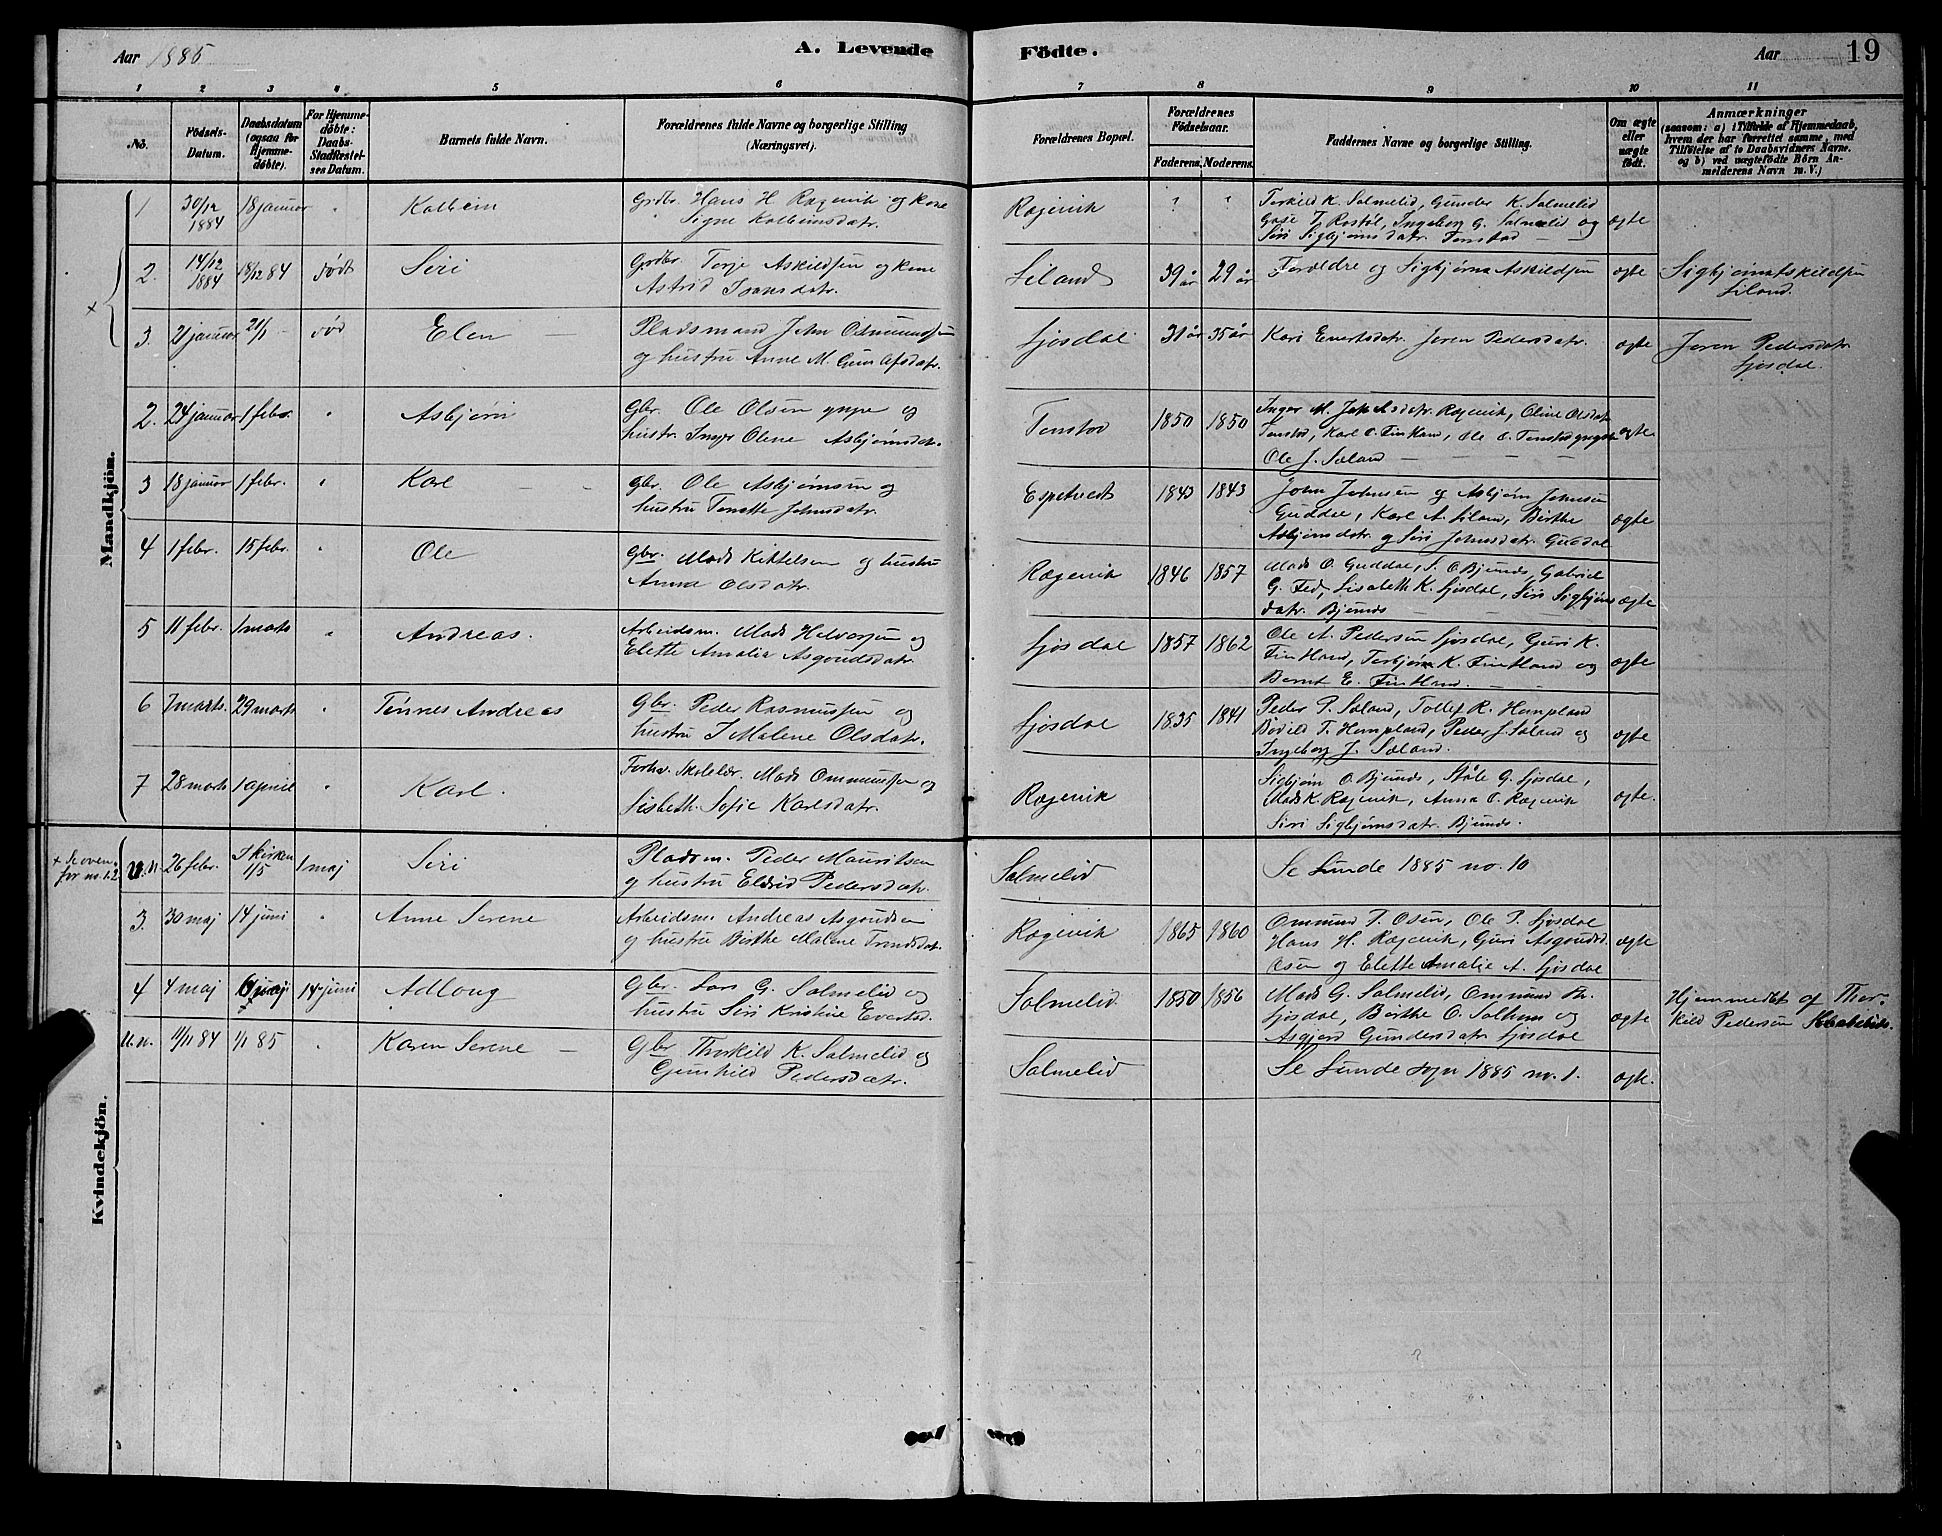 Aar 1885
A. Levende Födte.
Aar 19
1 2 3 4 5 6 7 8 9 10 11
No.
Födsels-Datum.
Daabsdatum (ogsaa for Hjemmedöbte).
For Hjemmedöbte: Daabs-Stadfæstelses Datum.
Barnets fulde Navn.
Forældrenes fulde Navne og borgerlige Stilling (Næringsvei).
Forældrenes Bopæl.
Forældrenes Födselsaar.
Faderens. Moderens.
Faddernes Navne og borgerlige Stilling.
Om ægte eller uægte födt.
Anmærkninger
(saasom: a) i Tilfælde af Hjemmedaab, hvem der har forrettet samme, med Tilföielse af to Daabsvidners Navne. og b) ved uægtefödte Börn Anmelderens Navn m. V.)
Mandkjön.
1 30/12 1884 18 januar " Kolbein
Grdbr. Hans H Rægevik og kone
Signe Kolbeinsdatr.
Rægevik ? ?
Torkild K. Salmelid, Gunder K. Salmelid
Gose T. Rostöl, Ingeborg G. Salmelid og
Siri Sigbjörnsdatr. Tonstad
ægte
2. 14/12 1884 18/12 84 född Siri
Grdbr. Torje Askildsen og kone
Astrid Tronsdatr.
Liland 39 år 29 år
Forældre og Sigbjörn Askildsen
ægte
Sigbjörn Askildsen
Liland.
3. 21 januar 21/1 död Elen
Pladsmand John Osmundsen
og hustru Anne M. Gunulfsdatr.
Sjösdal 31 år 35 år
Kari Evertsdatr. Joren Pedersdatr.
ægte
Joren Pedersdatr
Sjösdal.
2. 24 januar 1 febr. " Asbjörn
Gbr. Ole Olsen yngre og
hustr. Inger Olene Asbjörnsdatr.
Tonstad 1850 1850
Inger M. Jakobsdatr. Rægevik, Oline Olsdatr
Tonstad, Karl O. Fintland, Ole O. Tonstad yngre
Ole J. Sæland
ægte
3 18 januar 1 febr. " Karl
Gbr. Ole Asbjörnsen og
hustru Tonette Johnsdatr.
Espetvedt 1843 1843
John Johnsen og Asbjörn Johnsen
Guddal, Karl A. Liland, Birthe
Asbjörnsdatr. og Siri Johnsdatr. Guddal
ægte
4 1 febr. 15 febr. " Ole
Gbr. Mads Kittelsen og hustru
Anna Olsdatr.
Rægevik 1846 1857
Mads O. Guddal, S. O Bjunds, Gabriel
G. Fed, Lisabeth K. Sjösdal, Siri Sigbjörns
datr. Bjunds
ægte
5 11 febr. 1 marts " Andreas.
Arbeidsm. Mads Halvorsen og
Elette Amalia Asgoudsdatr.
Sjösdal 1857 1862
Ole A. Pedersen Sjösdal, Guri K.
Fintland, Torbjörn K. Fintland og
Bernt E. Fintland.
ægte
6 7 marts. 29 marts " Tönnes Andreas
Gbr. Peder Rasmussen og
hustru I. Malene Olsdatr.
Sjösdal 1835 1841
Peder P. Sæland, Tollef R. Hompland
Bodild T. Hompland, Peder J. Sæland og
Ingeborg J. Sæland.
ægte
7 28 marts 1 april " Karl.
Forhv. Skolelær. Mads Ommundsen og
Lisbeth Sofie Karlsdatr.
Rægevik
Sigbjörn O. Bjunds, Ståle G. Sjösdal,
Mads K. Rægevik, Anna O. Rægevik
Siri Sigbjörnsdatr. Bjunds.
ægte.
Kvindekjön.
+ Se ovenfor no. 1.2
U.n. 26 febr. I kirken 1/5 1 maj Siri
Pladsm. Peder Mauritsen
og hustru Eldrid Pedersdatr.
Salmelid
Se Lunde 1885 no. 10
3. 30 maj 14 juni " Anne Serene
Arbeidsm. Andreas Asgoudsen
og hustru Birthe Malene Trondsdatr.
Rægevik 1865 1860
Ommund T. Osen, Ole P. Sjösdal
Hans H. Rægevik, Guri Asgoudsd.
Osen og Elette Amalie A. Sjösdal
ægte
4 4 maj 6 maj 14 juni Adlong
Gbr. Lars G. Salmelid og
hustru Siri Kristine Evertsd.
Salmelid 1850 1856
Mads G. Salmelid, Ommund Th.
Sjösdal, Berthe O. Solhom og
Asgjerd Gundersdatr Sjösdal
ægte
Hjemmedöbt af Thor-
kild Pedersen
U.n. 11/11 84 1/1 85 " Karen Serene
Gbr Thorkild K. Salmelid og
Gunhild Pedersdatr.
Salmelid
Se Lunde sogn 1885 no. 1.
ægte.